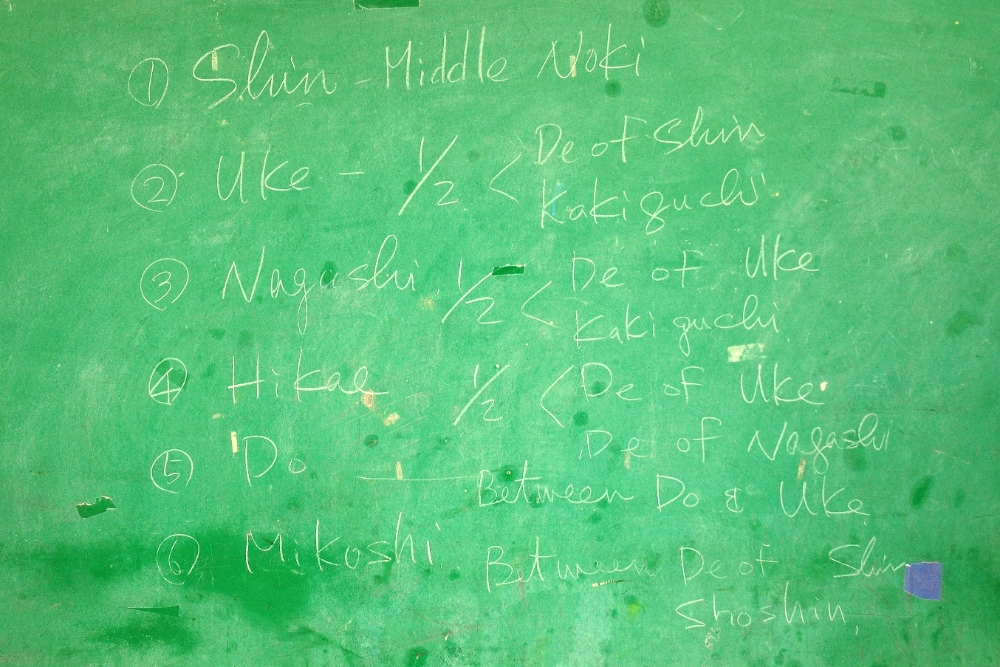 ① Shin - Middle Noki
② Uke - 1/2 < De of Shin
Kakiguchi
③ Nagashi 1/2 < De of Uke
Kakiguchi
④ Hikae 1/2 < De of Uke
De of Nagashi
⑤ Do — Between Do & Uke
⑥ Mikoshi Between De of Shin
Shoshin,